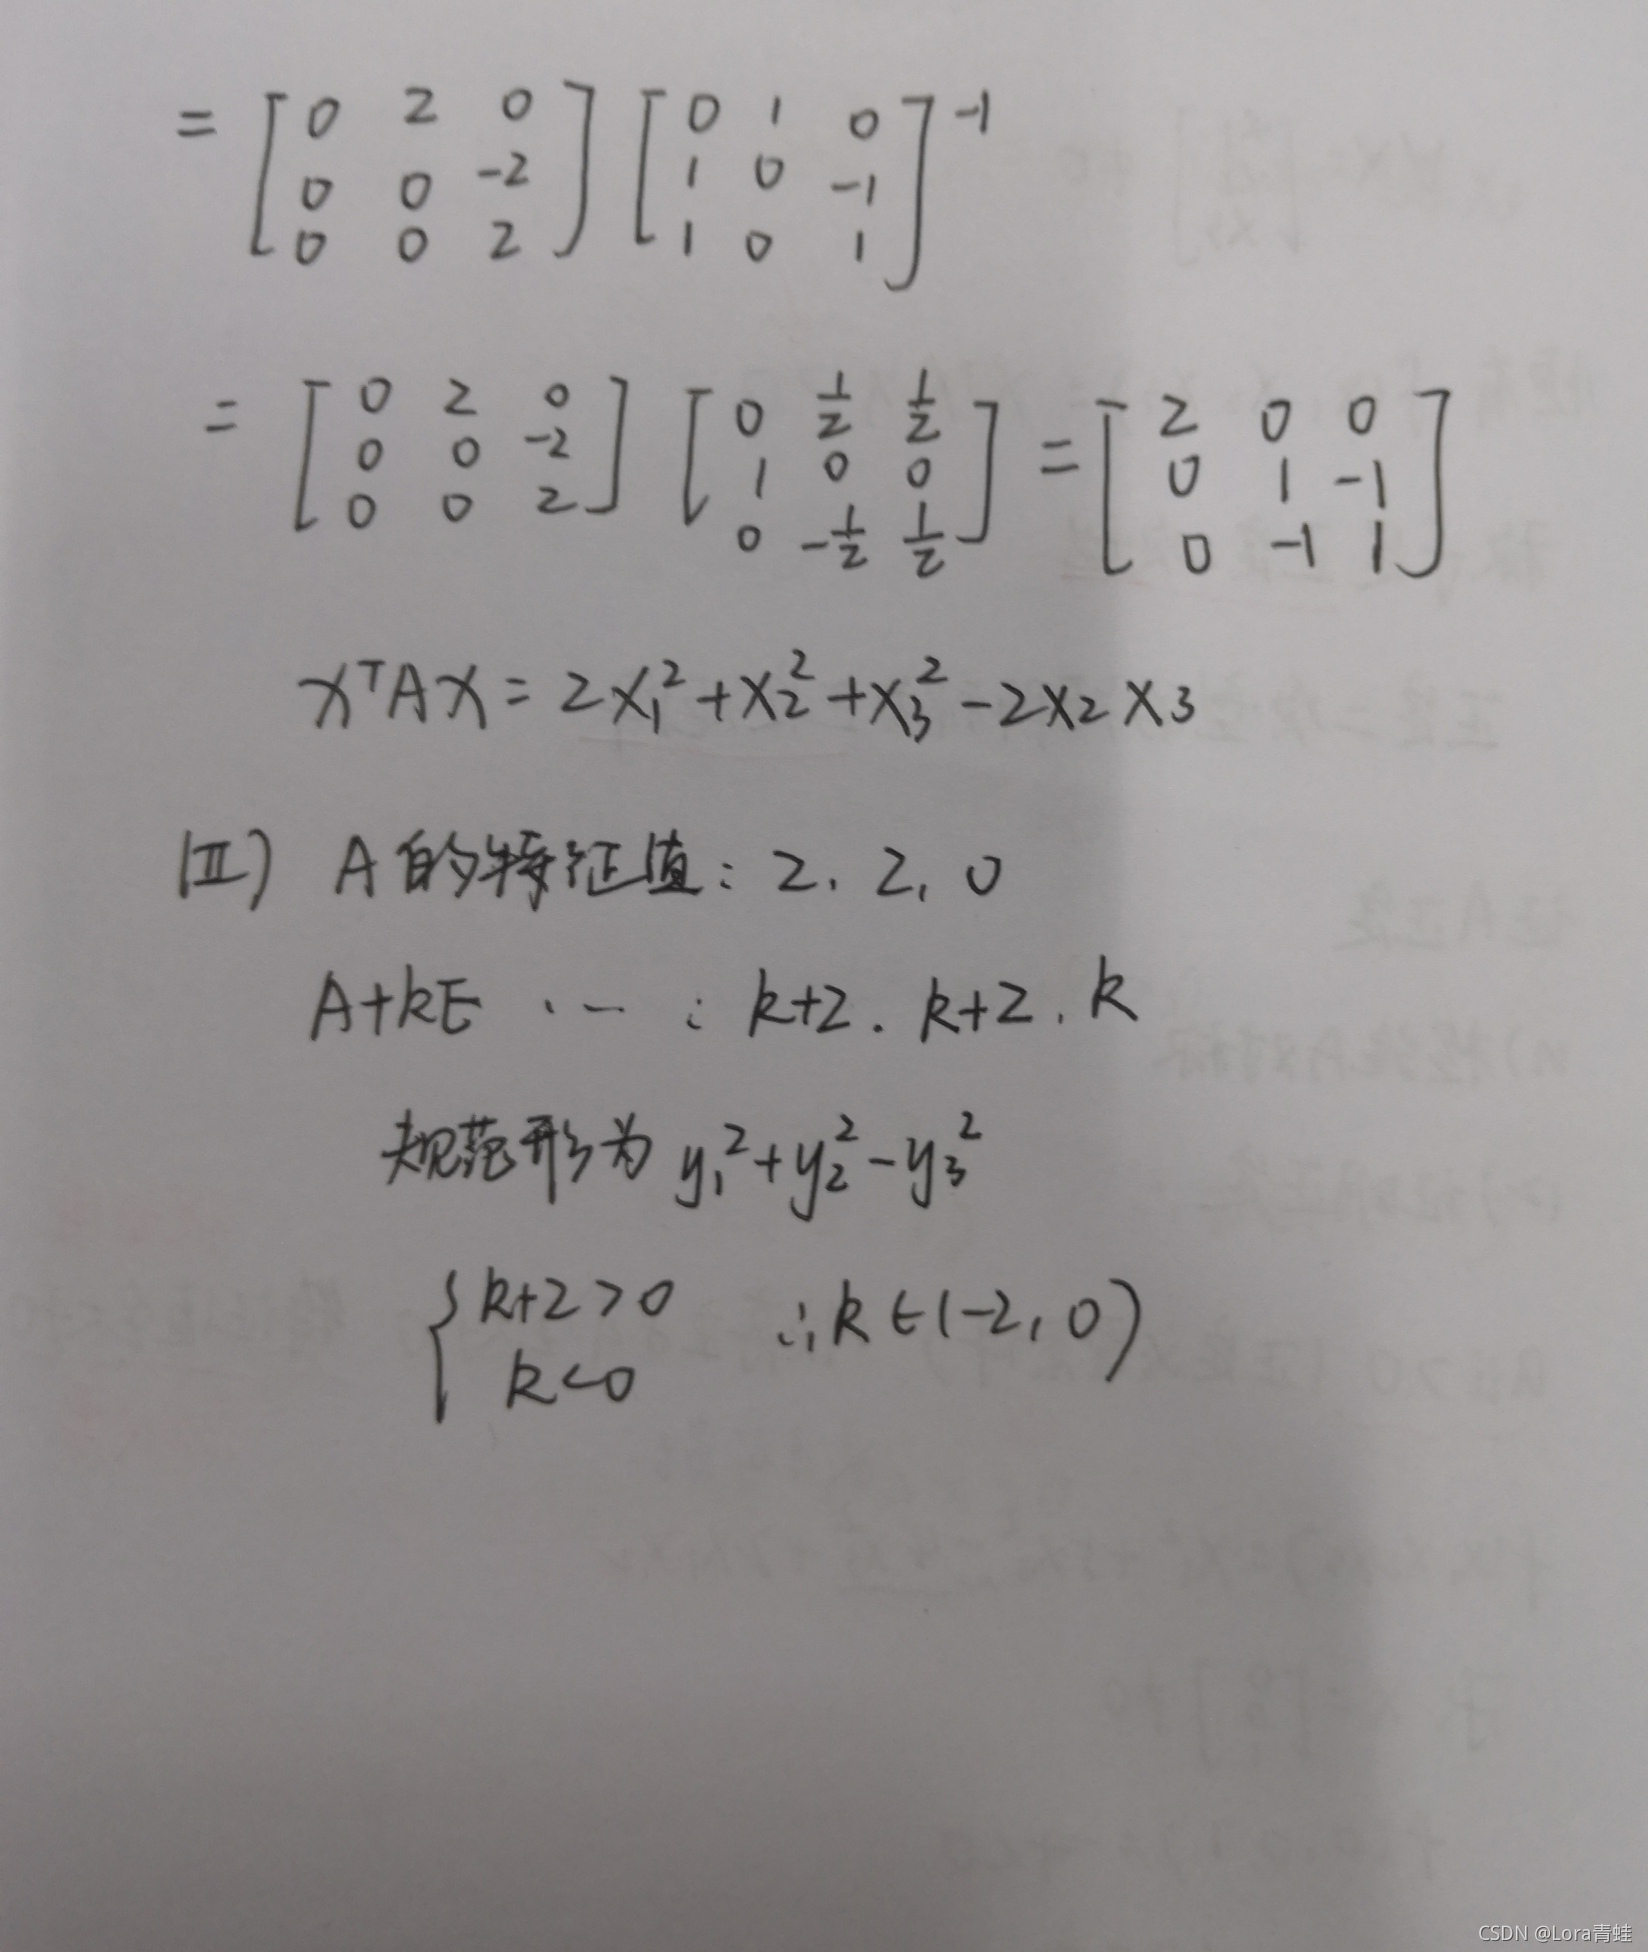 = [0 2 0; 0 0 -2; 0 0 2] [0 1 0; 1 0 -1; 1 0 1]⁻¹
= [0 2 0; 0 0 -2; 0 0 2] [0 1/2 1/2; 1 0 0; 0 -1/2 1/2] = [2 0 0; 0 1 -1; 0 -1 1]
xᵀAx = 2x₁² + x₂² + x₃² - 2x₂x₃
(Ⅱ) A的特征值: 2, 2, 0
A+kE ·–: k+2. k+2. k
规范形为 y₁² + y₂² - y₃²
{ k+2>0 ∴ k∈(-2, 0)
k<0
CSDN @Lora青蛙